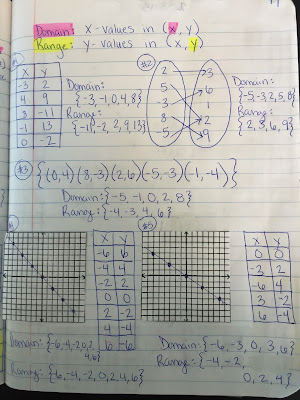 Domain: X-values in (x, y)
Range: y-values in (x, y)
#1
x y
-3 2
4 9
8 -11
-1 13
0 -2
Domain:
{-3, -1, 0, 4, 8}
Range:
{-11, -2, 2, 9, 13}
#2
2 3
5 6
-3 1
8 2
-5 9
Domain:
{-5, -3, 2, 5, 8}
Range:
{2, 3, 6, 9}
#3 {(0,4)(8,-3)(2,6)(-5,-3)(-1,-4)}
Domain: {-5, -1, 0, 2, 8}
Range: {-4, -3, 4, 6}
x y
-6 6
-4 4
-2 2
0 0
2 -2
4 -4
6 -6
Domain: {-6,-4,-2,0,2,
4,6}
Range: {6,-4,-2,0,2,4,6}
#5
x y
0 0
-3 2
-6 4
3 -2
6 -4
Domain: {-6, -3, 0, 3, 6}
Range: {-4, -2,
0, 2, 4}